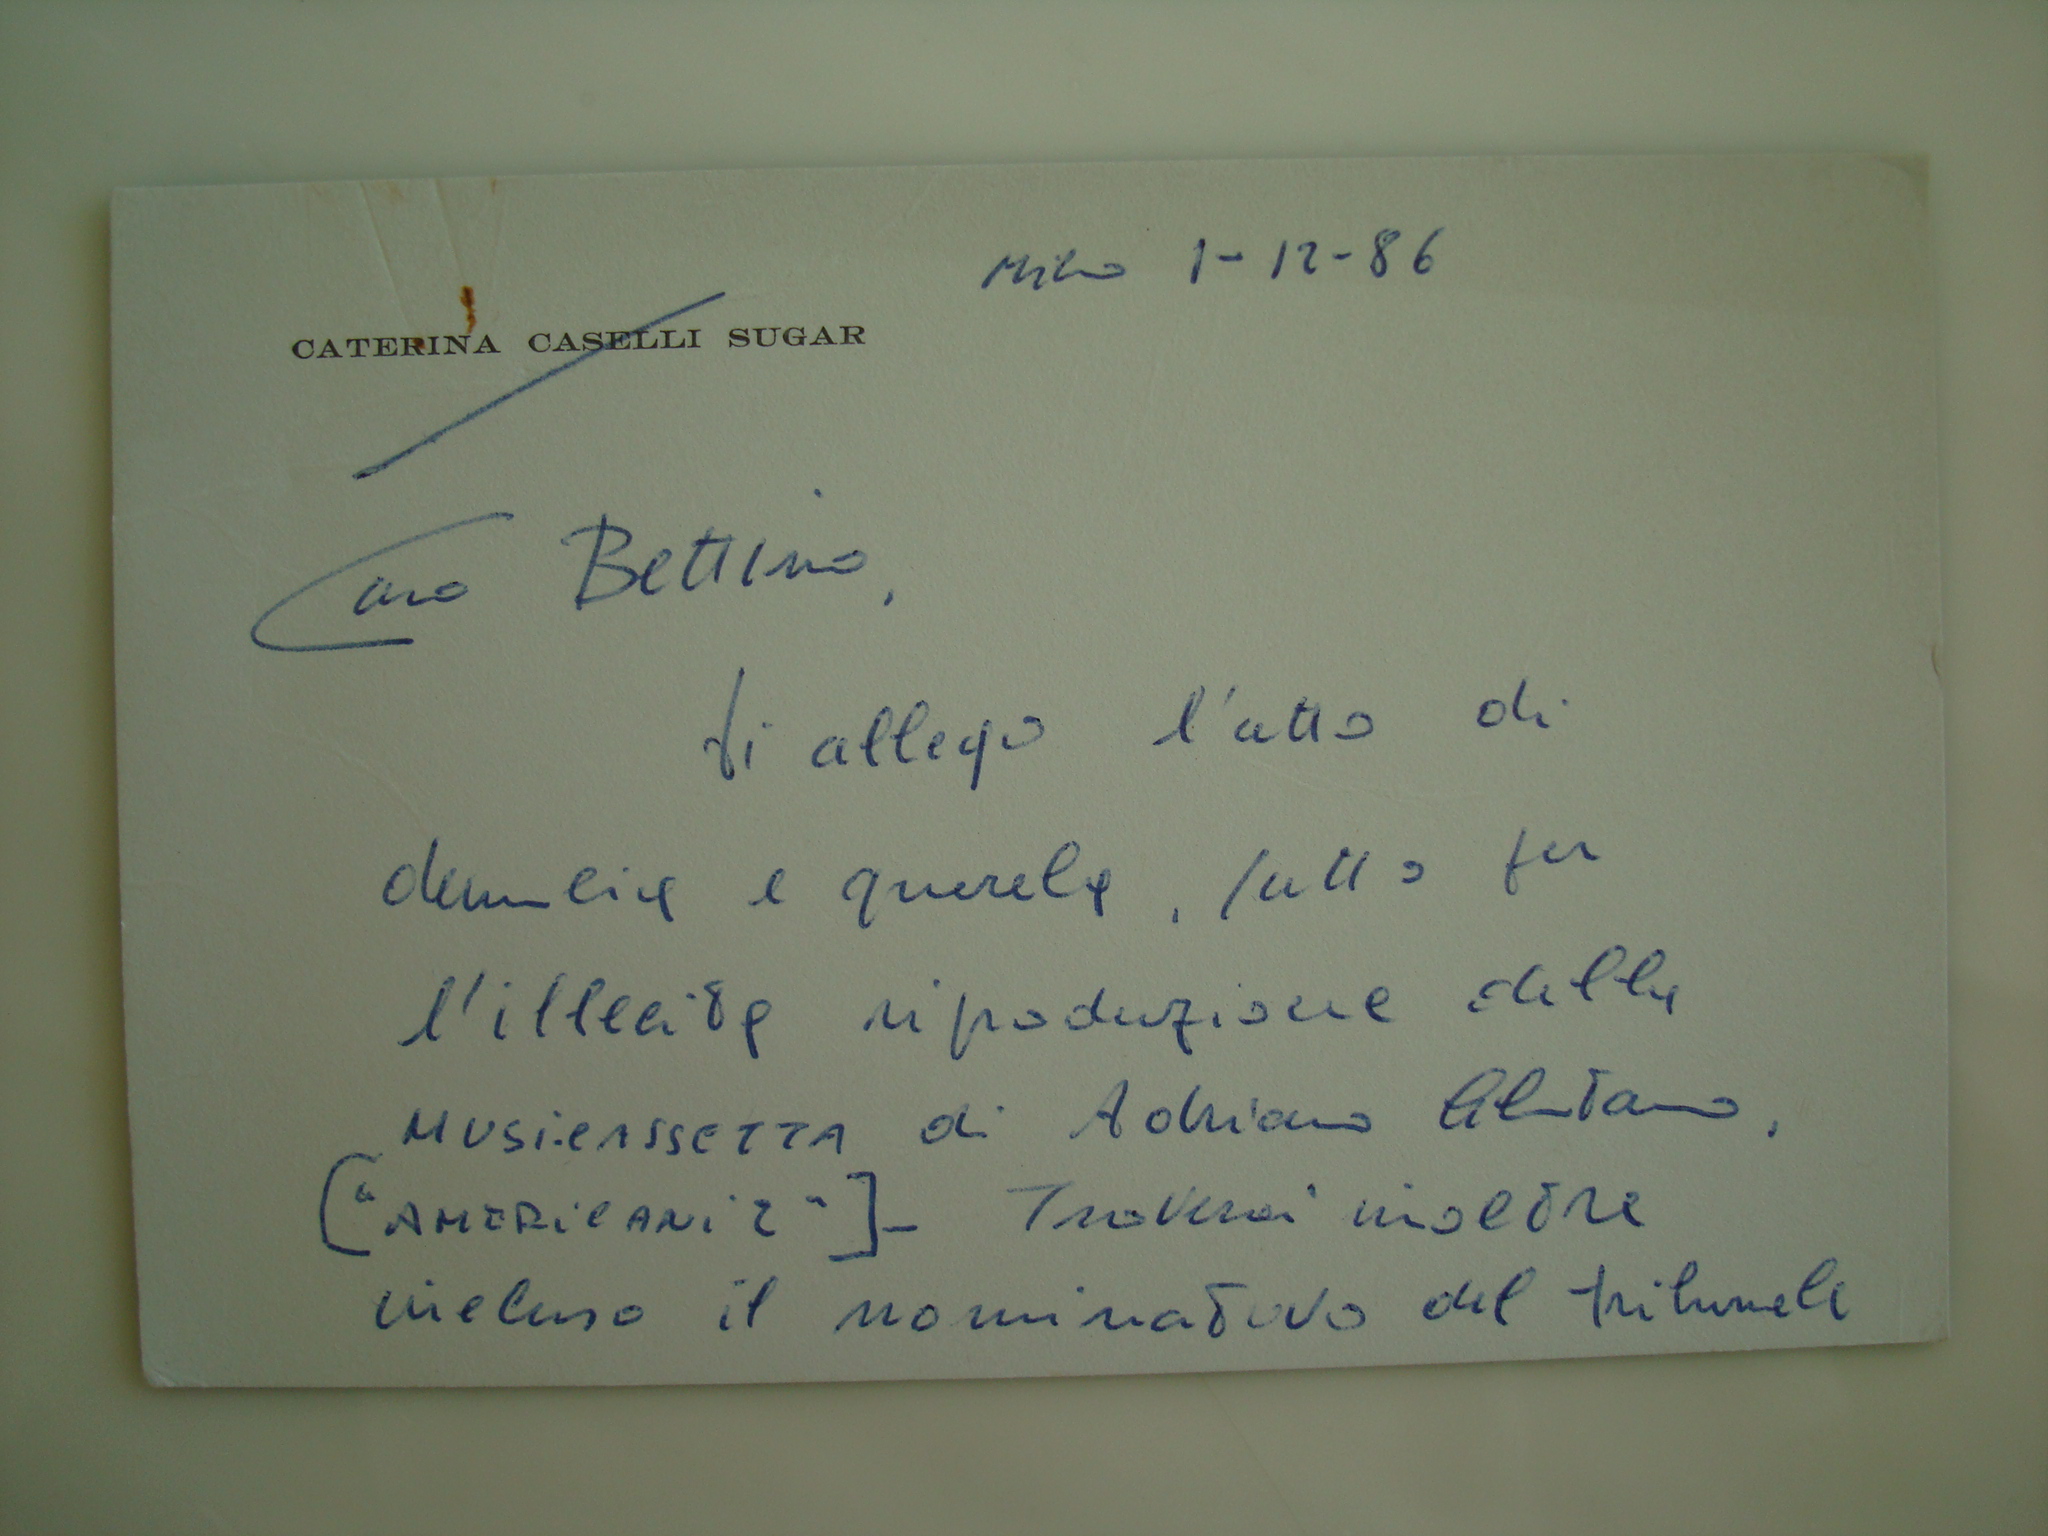 Milano 1-12-86
CATERINA CASELLI SUGAR
Caro Bettino,
ti allego l'atto di
denuncia e querela, fatto per
l'illecita riproduzione della
MUSICASSETTA di Adriano Celentano,
["AMERICANI 2"]- Troverai inoltre
incluso il nominativo del tribunale